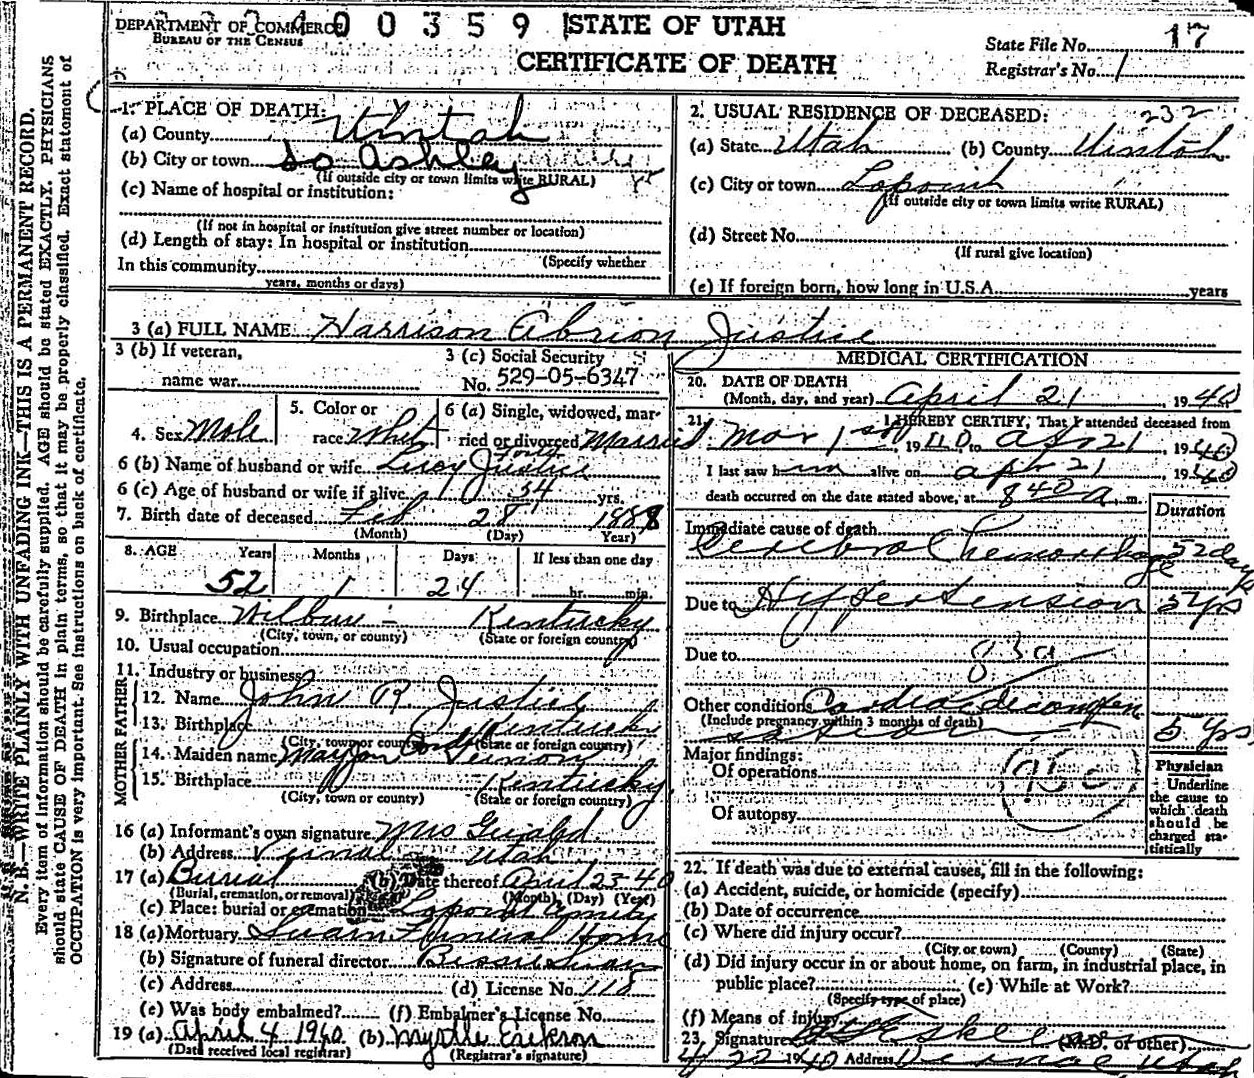 DEPARTMENT OF COMMERCE
BUREAU OF THE CENSUS
0 0 3 5 9
STATE OF UTAH
CERTIFICATE OF DEATH
State File No. 17
Registrar's No. 1
N. B.—WRITE PLAINLY WITH UNFADING INK—THIS IS A PERMANENT RECORD.
Every item of information should be carefully supplied. AGE should be stated EXACTLY. PHYSICIANS
should state CAUSE OF DEATH in plain terms, so that it may be properly classified. Exact statement of
OCCUPATION is very important. See instructions on back of certificate.
1. PLACE OF DEATH:
(a) County Uintah
(b) City or town So Ashley
(If outside city or town limits write RURAL)
(c) Name of hospital or institution:
(If not in hospital or institution give street number or location)
(d) Length of stay: In hospital or institution
(Specify whether
In this community
years, months or days)
2. USUAL RESIDENCE OF DECEASED: 232
(a) State Utah (b) County Uintah
(c) City or town Lapoint
(If outside city or town limits write RURAL)
(d) Street No.
(If rural give location)
(e) If foreign born, how long in U.S.A. years
3 (a) FULL NAME Harrison Abrion Justice
3 (b) If veteran,
name war
3 (c) Social Security
No. 529-05-6347
4. Sex Male
5. Color or
race White
6 (a) Single, widowed, mar-
ried or divorced Married
6 (b) Name of husband or wife Leroy Justice
6 (c) Age of husband or wife if alive 54 yrs.
7. Birth date of deceased Feb 28 1888
(Month) (Day) Year)
8. AGE Years Months Days If less than one day
52 1 24 hr. min.
9. Birthplace Wilbur - Kentucky
(City, town, or county) (State or foreign country)
10. Usual occupation
11. Industry or business
FATHER
12. Name John R. Justice
13. Birthplace Kentucky
(City, town or county) (State or foreign country)
MOTHER
14. Maiden name
15. Birthplace Kentucky
(City, town or county) (State or foreign country)
16 (a) Informant's own signature Mrs
(b) Address Vernal Utah
17 (a) Burial (b) Date thereof April 23 40
(Burial, cremation, or removal) (Month) (Day) (Year)
(c) Place: burial or cremation Lapoint
18 (a) Mortuary Swain Funeral Home
(b) Signature of funeral director Bessie Swain
(c) Address (d) License No. 118
(e) Was body embalmed? (f) Embalmer's License No.
19 (a) April 4 1940 (b) Myrtle Erikson
(Date received local registrar) (Registrar's signature)
MEDICAL CERTIFICATION
20. DATE OF DEATH
(Month, day, and year) April 21, 1940
21. I HEREBY CERTIFY, That I attended deceased from
Mar 1st, 1940, to Apr 21, 1940
I last saw him alive on Apr 21 1940
death occurred on the date stated above, at 8 40 a m.
Duration
Immediate cause of death
Cerebral Hemorrhage 52 days
Due to Hypertension 5 yrs
Due to 83a
Other conditions Cardiac decompen
(Include pregnancy within 3 months of death)
sation 5 yrs
Major findings:
Of operations
Of autopsy
Physician
Underline
the cause to
which death
should be
charged sta-
tistically
22. If death was due to external causes, fill in the following:
(a) Accident, suicide, or homicide (specify)
(b) Date of occurrence
(c) Where did injury occur?
(City or town) (County) (State)
(d) Did injury occur in or about home, on farm, in industrial place, in
public place? (e) While at Work?
(Specify type of place)
(f) Means of injury
23. Signature (M.D. or other)
4/22 1940 Address Vernal Utah